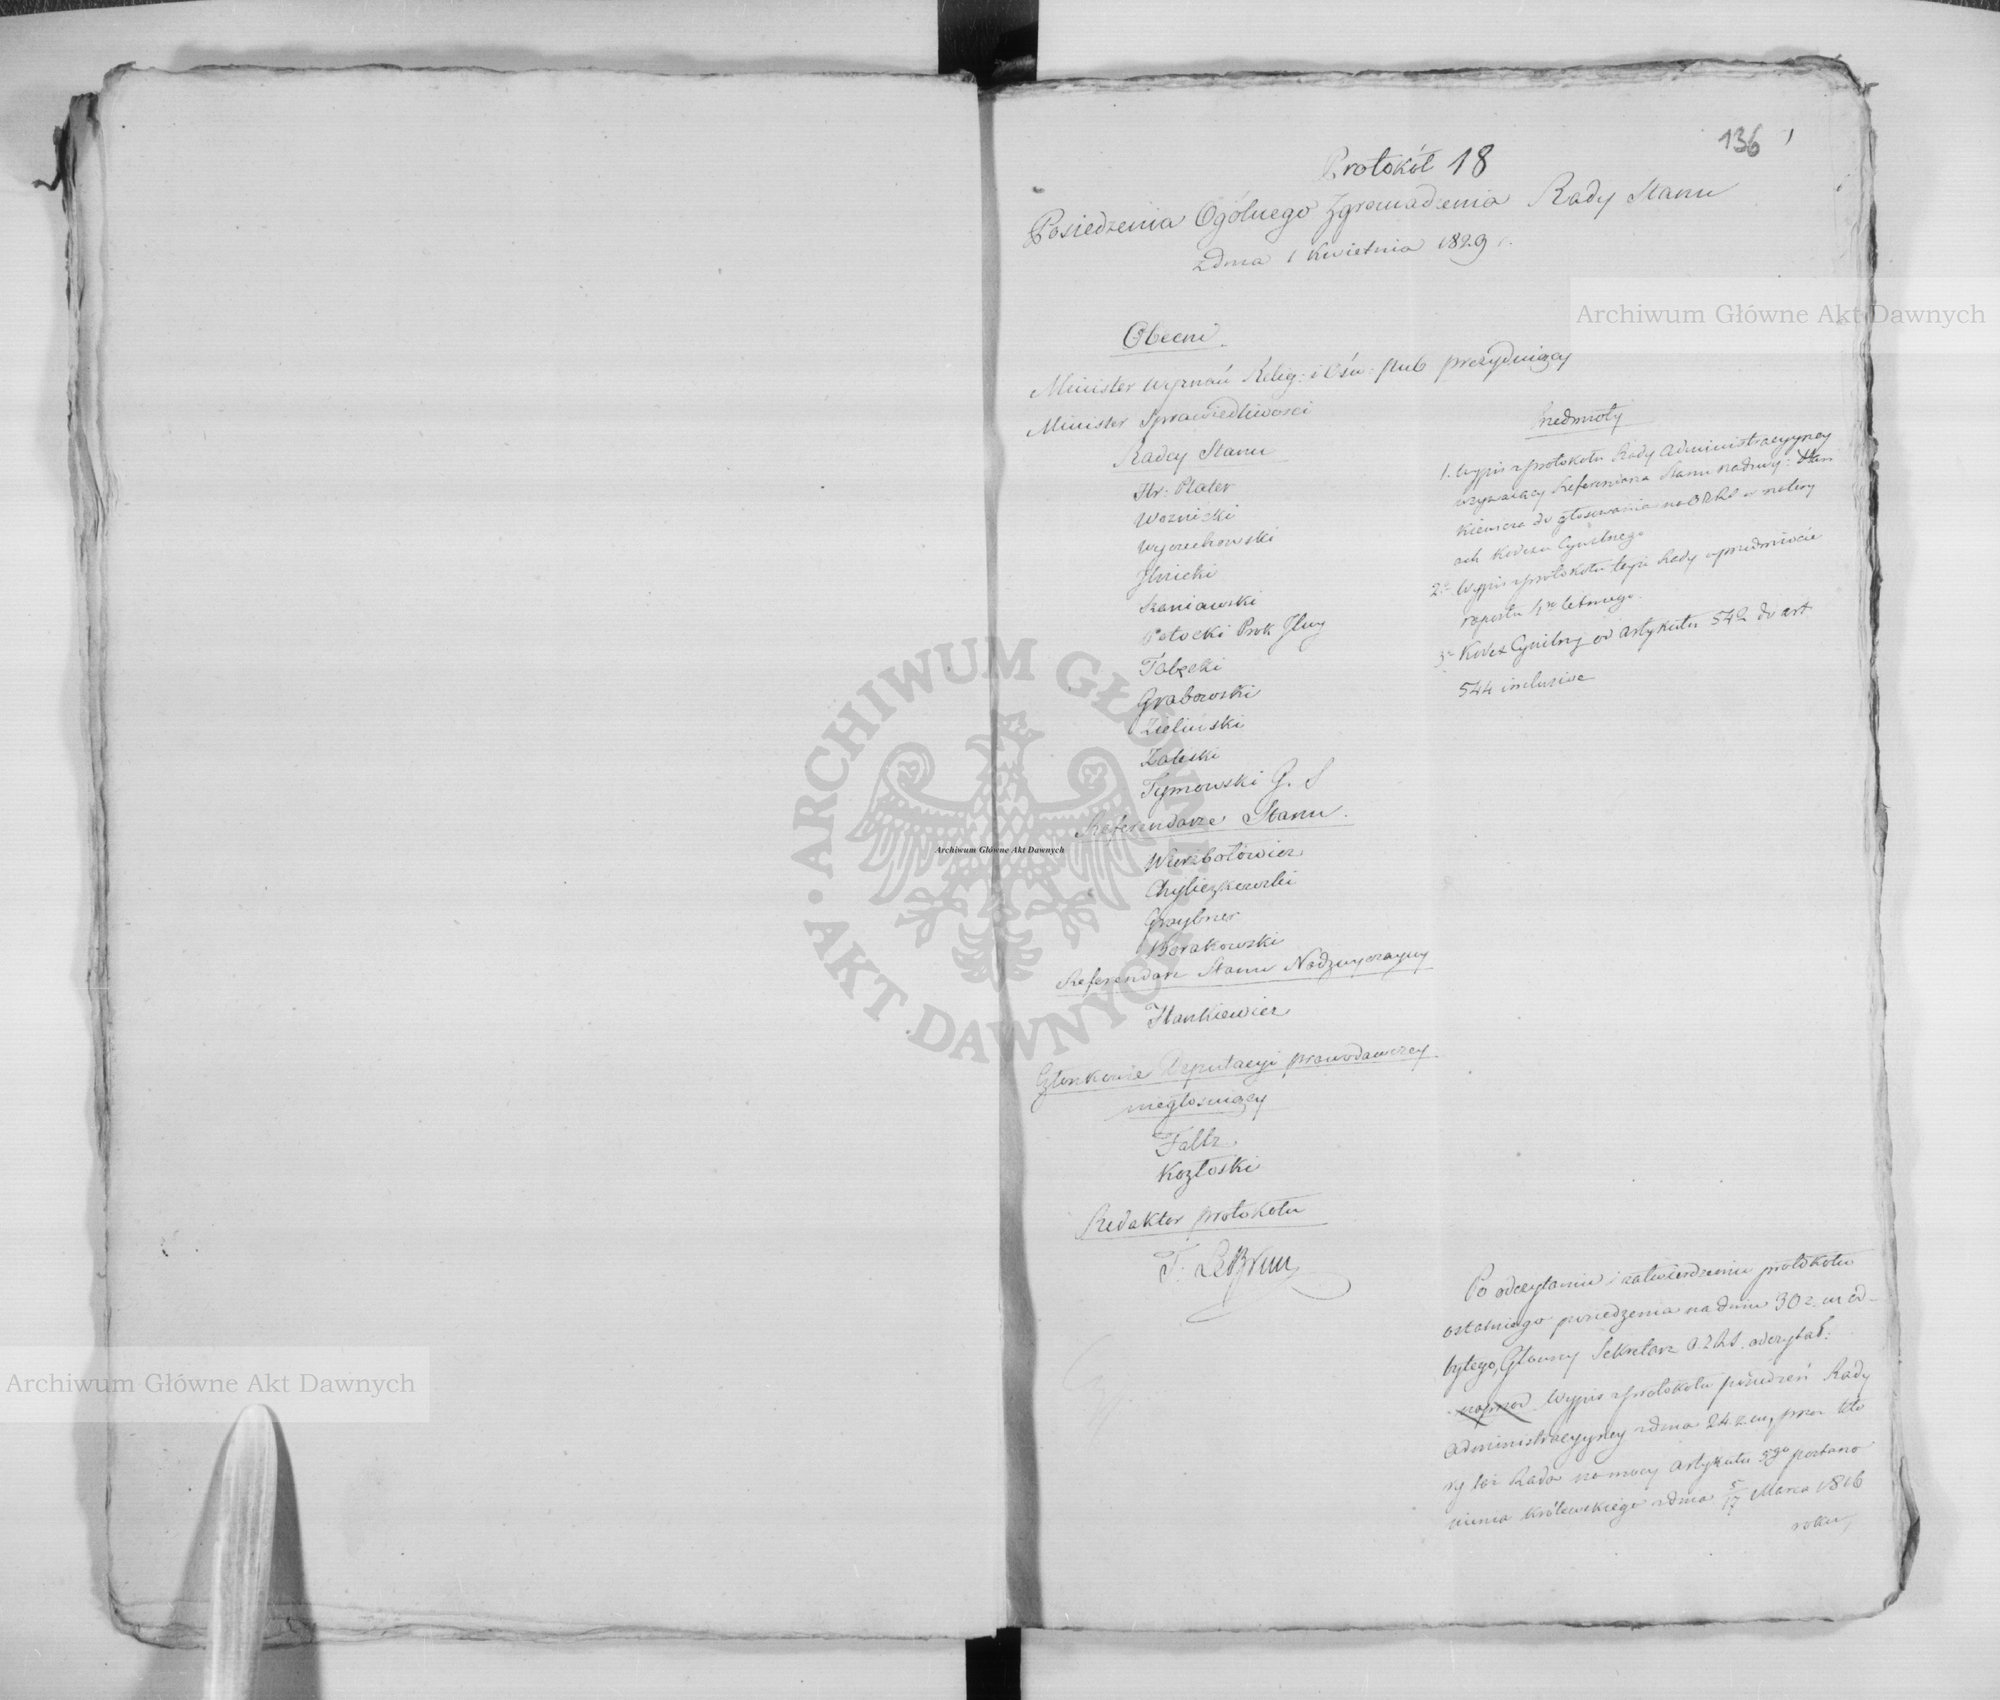 136
Protokół 18
Posiedzenia Ogólnego Zgromadzenia Rady Stanu
z dnia 1 Kwietnia 1829 r.
Archiwum Główne Akt Dawnych
Obecni.
Minister Wyznań Relig: i Ośw: Pub prezyduiący
Minister Sprawiedliwości
Radcy Stanu
Hr: Plater
Woznicki
Wyczechowski
Ilnicki
Szaniawski
Potocki Prok Jlny
Grabowski
Zieliński
Zaleski
Tymowski G. S
Referendarze Stanu.
Wierzbołowicz
Chyliczkowski
Graybner
Borakowski
Referendarz Stanu Nadzwyczayny
Hankiewicz
Członkowie Deputacyi prawodawczey
niegłosuiący
Faltz
Kozłoski
Redaktor protokołu
T. LeBrun
Przedmioty
1. Wypis z protokołu Rady Administracyyney
wzywaiący Referendarza Stanu nadzwy: Han
kiewicza do głosowania na OZRS w materyi
ach Kodexu Cywilnego
2. Wypis z protokołu teyże Rady o przedmiocie
raportu 4ro letniego.
3. Kodex Cywilny od artykułu 542 do art
544 inclusive
Po odczytaniu i zatwierdzeniu protokołu
ostatniego posiedzenia na dniu 30 z. m od-
bytego, Głowny Sekretarz O.Z.R.S. odczytał:
naprzod Wypis z protokołu posiedzeń Rady
Administracyyney z dnia 24 z. m, przez któ
ry taż Rada na mocy Artykułu 53go postano
wienia Królewskiego z dnia 5/17 Marca 1816
roku,
Archiwum Główne Akt Dawnych
ARCHIWUM GŁÓWNE AKT DAWNYCH
Archiwum Główne Akt Dawnych